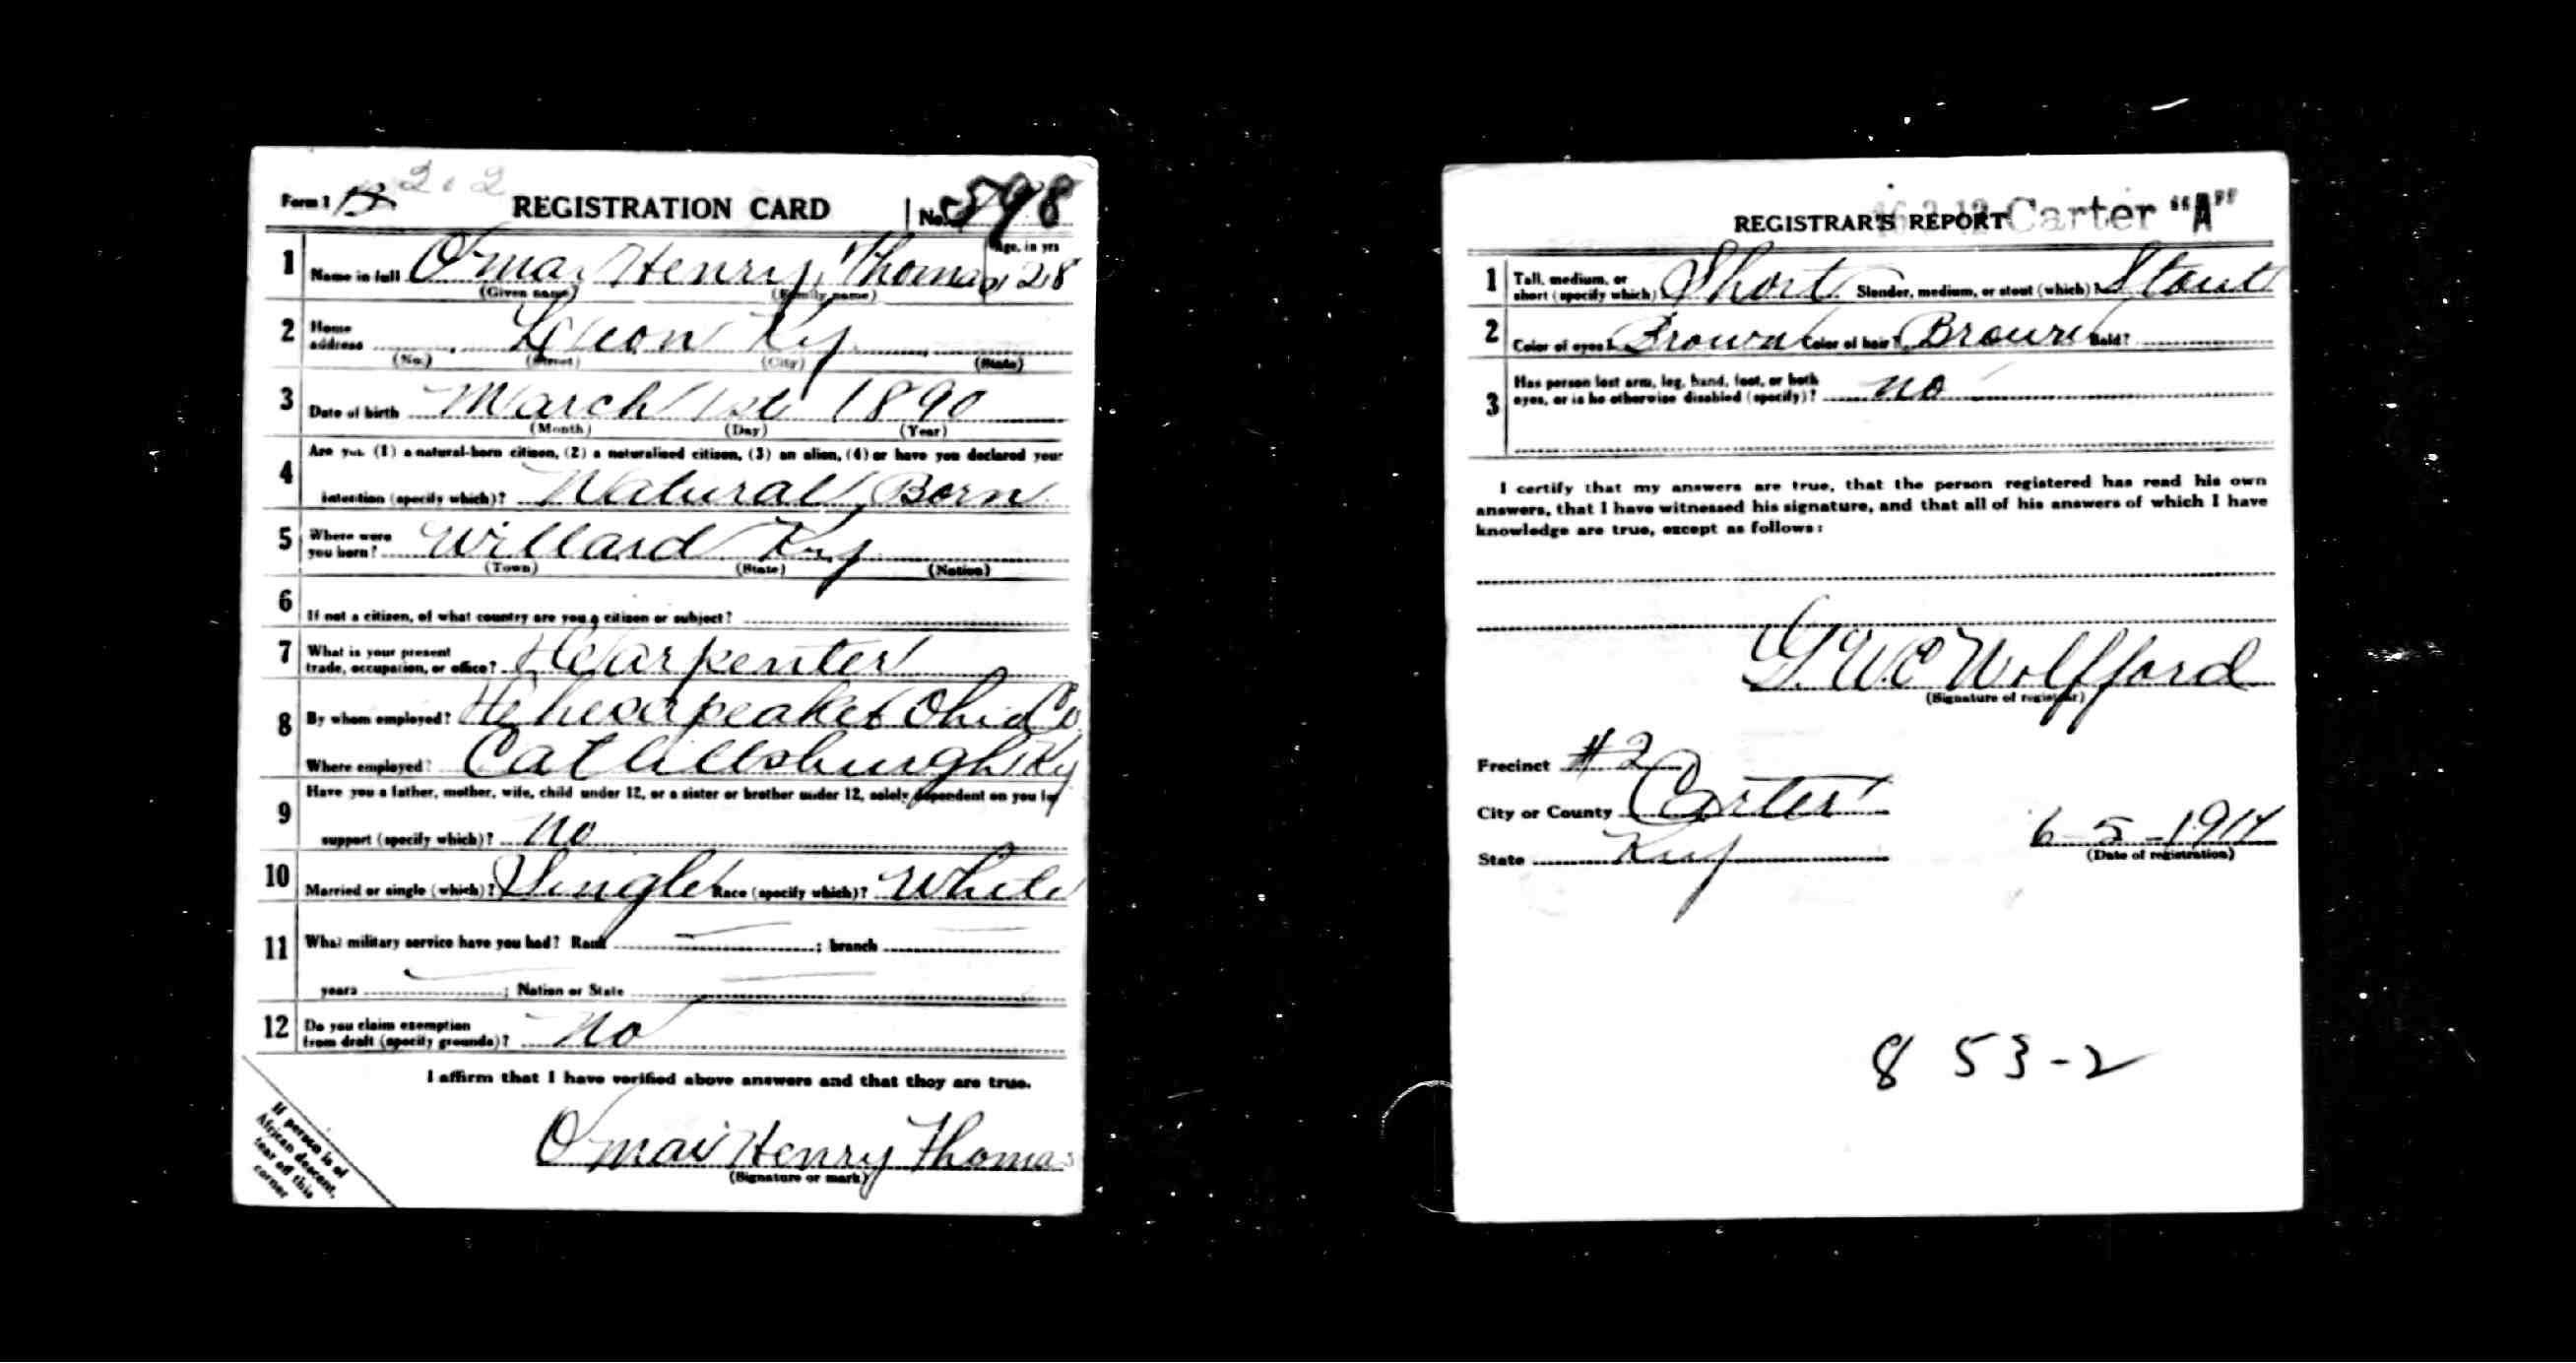 Form 1 202 REGISTRATION CARD No. 598
1 Name in full Omar Henry Thomas Age, in yrs 28
(Given name) (Family name)
2 Home address Leon Ky
(No.) (Street) (City) (State)
3 Date of birth March 1st 1890
(Month) (Day) (Year)
4 Are you (1) a natural-born citizen, (2) a naturalized citizen, (3) an alien, (4) or have you declared your
intention (specify which)? Natural Born
5 Where were you born? Willard Ky
(Town) (State) (Nation)
6 If not a citizen, of what country are you a citizen or subject?
7 What is your present trade, occupation, or office? Carpenter
8 By whom employed? Chesapeake & Ohio Co
Where employed? Catlettsburgh Ky
9 Have you a father, mother, wife, child under 12, or a sister or brother under 12, solely dependent on you for
support (specify which)? No
10 Married or single (which)? Single Race (specify which)? White
11 What military service have you had? Rank ; branch
years ; Nation or State
12 Do you claim exemption from draft (specify grounds)? No
I affirm that I have verified above answers and that they are true.
Omar Henry Thomas
(Signature or mark)
If person is of
African descent,
tear off this
corner
REGISTRAR'S REPORT Carter "A"
1 Tall, medium, or short (specify which)? Short Slender, medium, or stout (which)? Stout
2 Color of eyes? Brown Color of hair? Brown Bald?
3 Has person lost arm, leg, hand, foot, or both
eyes, or is he otherwise disabled (specify)? no
I certify that my answers are true, that the person registered has read his own
answers, that I have witnessed his signature, and that all of his answers of which I have
knowledge are true, except as follows:
G. W. C Wolfford
(Signature of registrar)
Precinct #2
City or County Carter
State Ky
6-5-1917
(Date of registration)
8 53-2